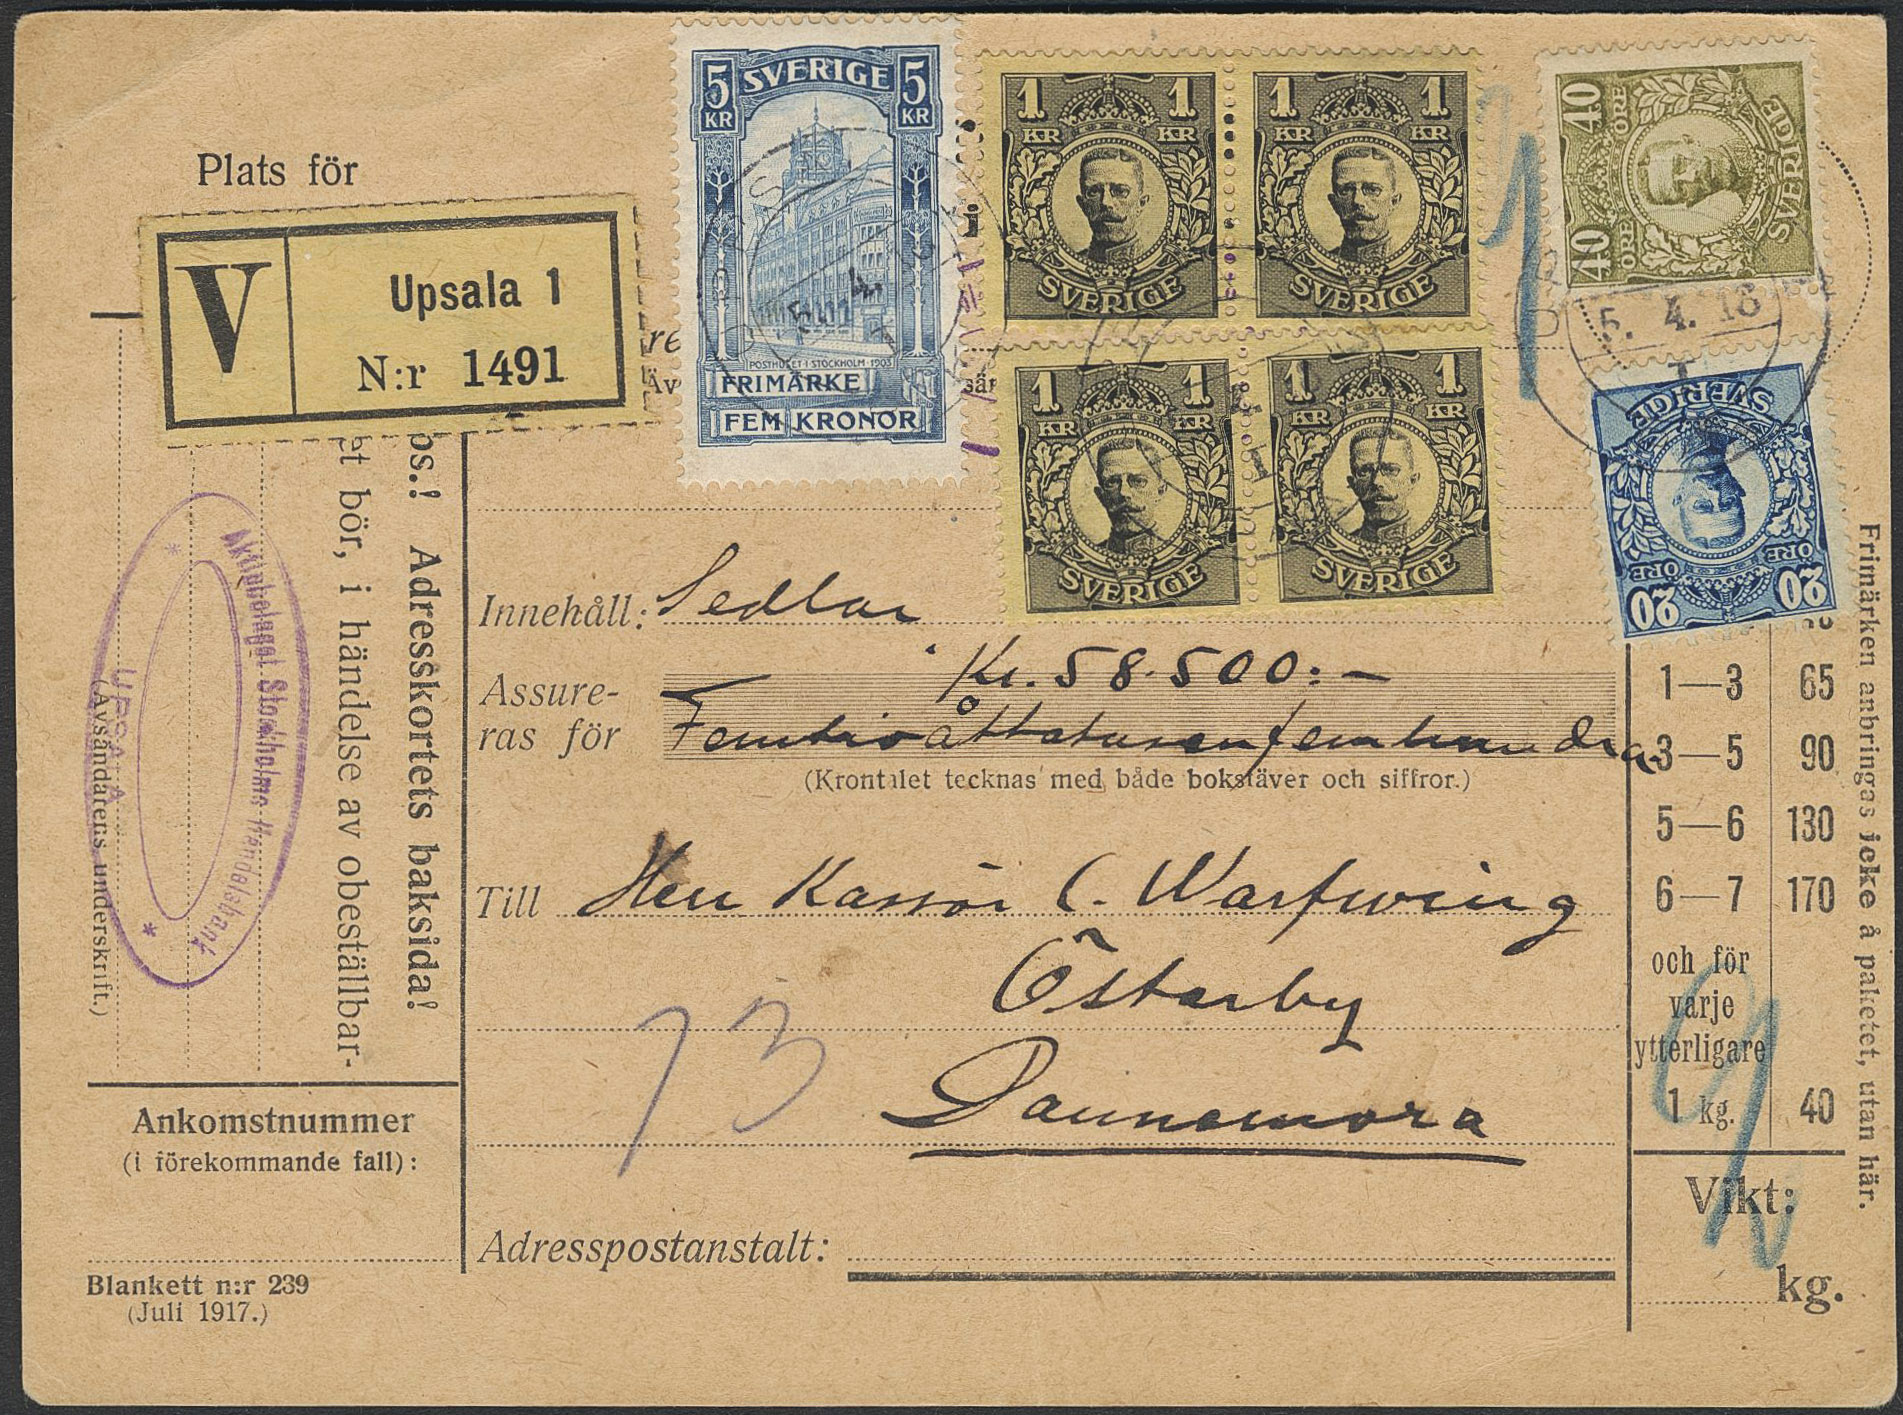 Plats för
V
Upsala 1
N:r 1491
5 KR
SVERIGE
5 KR
POSTHUSET I STOCKHOLM · 1903
FRIMÄRKE
FEM KRONOR
1 KR
1 KR
SVERIGE
1 KR
1 KR
SVERIGE
1 KR
1 KR
SVERIGE
1 KR
1 KR
SVERIGE
40 ÖRE
40 ÖRE
SVERIGE
5. 4. 18
SVERIGE
20 ÖRE
20 ÖRE
Adresskortets baksida!
et bör, i händelse av obeställbar-
Aktiebolaget Stockholms Handelsbank
UPSALA
(Avsändarens underskrift.)
Innehåll: Sedlar
Kr. 58.500:-
Assure-
ras för Femtioåttatusenfemhundra
(Krontalet tecknas med både bokstäver och siffror.)
Till Herr Kassör C. Warfwing
Österby
Dannemora
73
Adresspostanstalt:
1—3 65
3—5 90
5—6 130
6—7 170
och för
varje
ytterligare
1 kg. 40
Vikt:
kg.
Frimärken anbringas icke å paketet, utan här.
Ankomstnummer
(i förekommande fall):
Blankett n:r 239
(Juli 1917.)